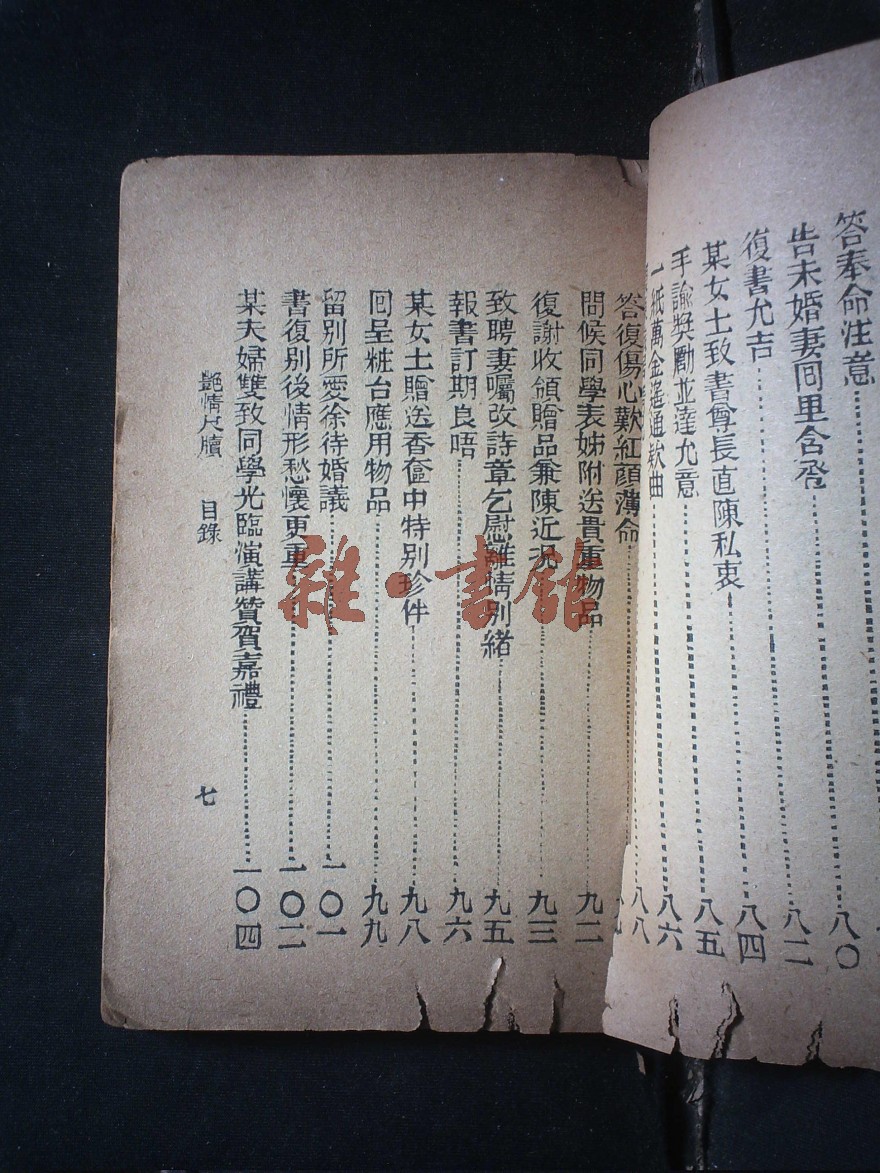 答奉命注意 八〇
告未婚妻回里合卺 八二
復書允吉 八四
某女士致書尊長直陳私衷 八五
手諭獎勵並達允意 八六
一紙萬金遙通款曲 八八
答復傷心歎紅顏薄命
問候同學表姊附送貴重物品 九二
復謝收領贈品兼陳近況 九三
致聘妻囑改詩章乞慰離情別緒 九五
報書訂期良唔 九六
某女士贈送香奩中特別珍件 九八
囘呈粧台應用物品 九九
留別所愛徐待婚議 一〇一
書復別後情形愁懷更重 一〇二
某夫婦雙致同學光臨演講贊賀嘉禮 一〇四
艷情尺牘 目錄 七
雜·書館